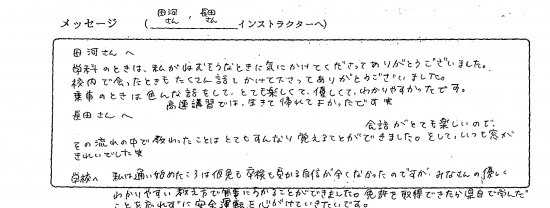 田河さん 、 長田さん
メッセージ ( インストラクターへ)
田河さんへ
学科のときは、私がねむそうなときに気にかけてくださってありがとうございました。
校内で会ったときもたくさん話しかけて下さってありがとうございました。
乗車のときは色んな話をして、とても楽しくて、優しくて、わかりやすかったです。
高速講習では、生きて帰れてよかったです★
長田さんへ
会話がとても楽しいので、
その流れの中で教わったことはとてもすんなり覚えることができました。そして、いつも窓が
きれいでした★
学校へ 私は通い始めたころは仮免も卒検も受かる自信が全くなかったのですが、みなさんの優しく
わかりやすい教え方で無事にうかることができました。免許を取得できたら県自で学んだ
ことを忘れずに安全運転を心がけていきたいです。